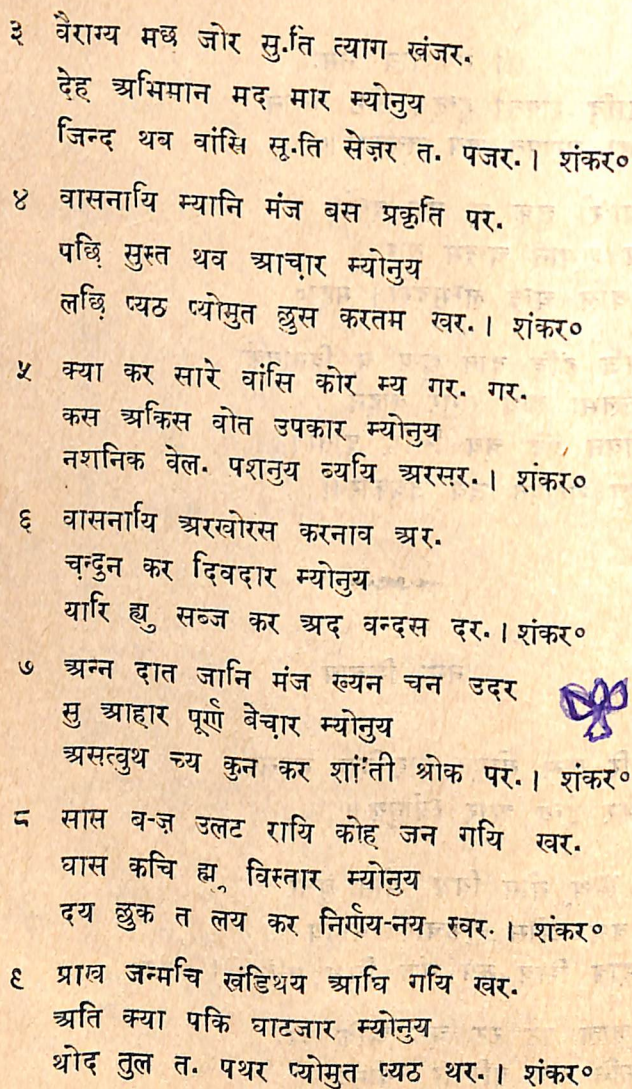 ३ वैराग्य मछ जोर सु.ति त्याग खंजर.
देह अभिमान मद मार म्योनुय
जिन्द थव वांसि सू.ति सेज़र त. पजर. । शंकर०
४ वासनायि म्यानि मंज बस प्रकृति पर.
पछि सुस्त थव आचा़र म्योनुय
लछि प्यठ प्योमुत छुस करतम खर. । शंकर०
५ क्या कर सारे वांसि कोर म्य गर. गर.
कस अकिस वोत उपकार म्योनुय
नशनिक वेल. पशनुय व्ययि अरसर. । शंकर०
६ वासनायि अरखोरस करनाव अर.
च़न्दुन कर दिवदार म्योनुय
यारि ह्यु सब्ज कर अद वन्दस दर. । शंकर०
७ अन्न दात जानि मंज ख्यन चन उदर
सु आहार पूर्ण बेचा़र म्योनुय
असत्वुथ च्य कुन कर शां'ती श्रोक पर. । शंकर०
८ सास ब-ज़ उलट रायि कोह जन गयि खर.
घास कचि ह्यु विस्तार म्योनुय
दय छुक त लय कर निर्णय-नय स्वर. । शंकर०
९ प्राख जन्मचि खंडिथय आघि गयि खर.
अति क्या पकि घाटजार म्योनुय
थोद तुल त. पथर प्योमुत प्यठ थर. । शंकर०